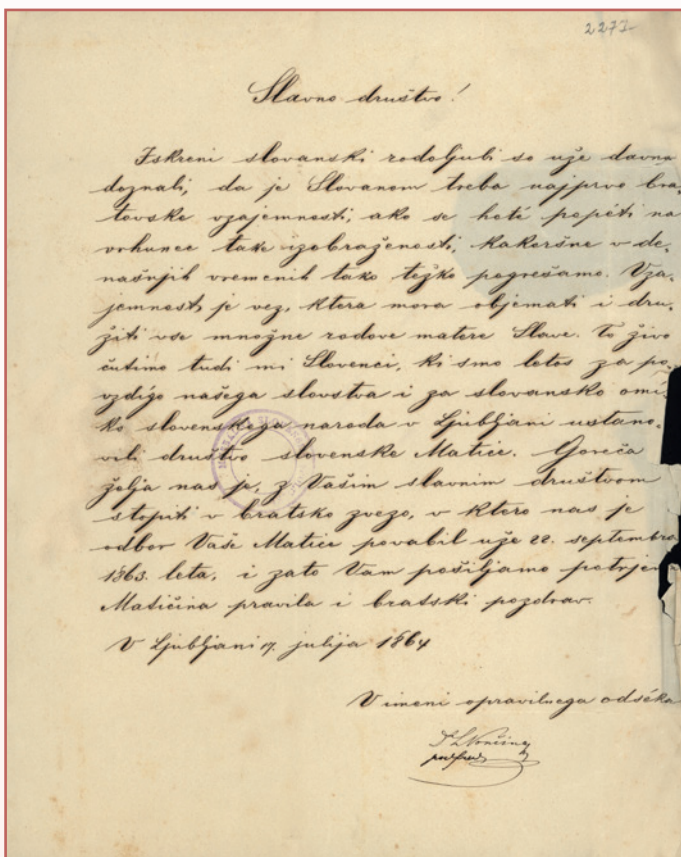 2273
Slavno društvo!
Iskreni slovanski rodoljubi so uže davna
doznali, da je Slovanom treba najprvo bra-
tovske vzajemnosti, ako se hoté popéti na
vrhunec take izobraženosti, kakoršne v de-
našnjih vremenih tako težko pogrešamo. Vza-
jemnost je vez, ktera mora objemati i dru-
žiti vse množne rodove matere Slave. To živo
čutimo tudi mi Slovenci, ki smo letos za po-
vzdigo našega slovstva i za slovansko omi-
ko slovenskega naroda v Ljubljani ustano-
vili društvo slovenske Matice. Goreča
želja nas je, z Vašim slavnim društvom
stopiti v bratsko zvezo, v ktero nas je
odbor Vaše Matice povabil uže 22. septembra
1863. leta, i zato Vam pošiljamo potrjen
Matičina pravila i bratski pozdrav.
V Ljubljani 17. julija 1864
V imeni opravilnega odséka